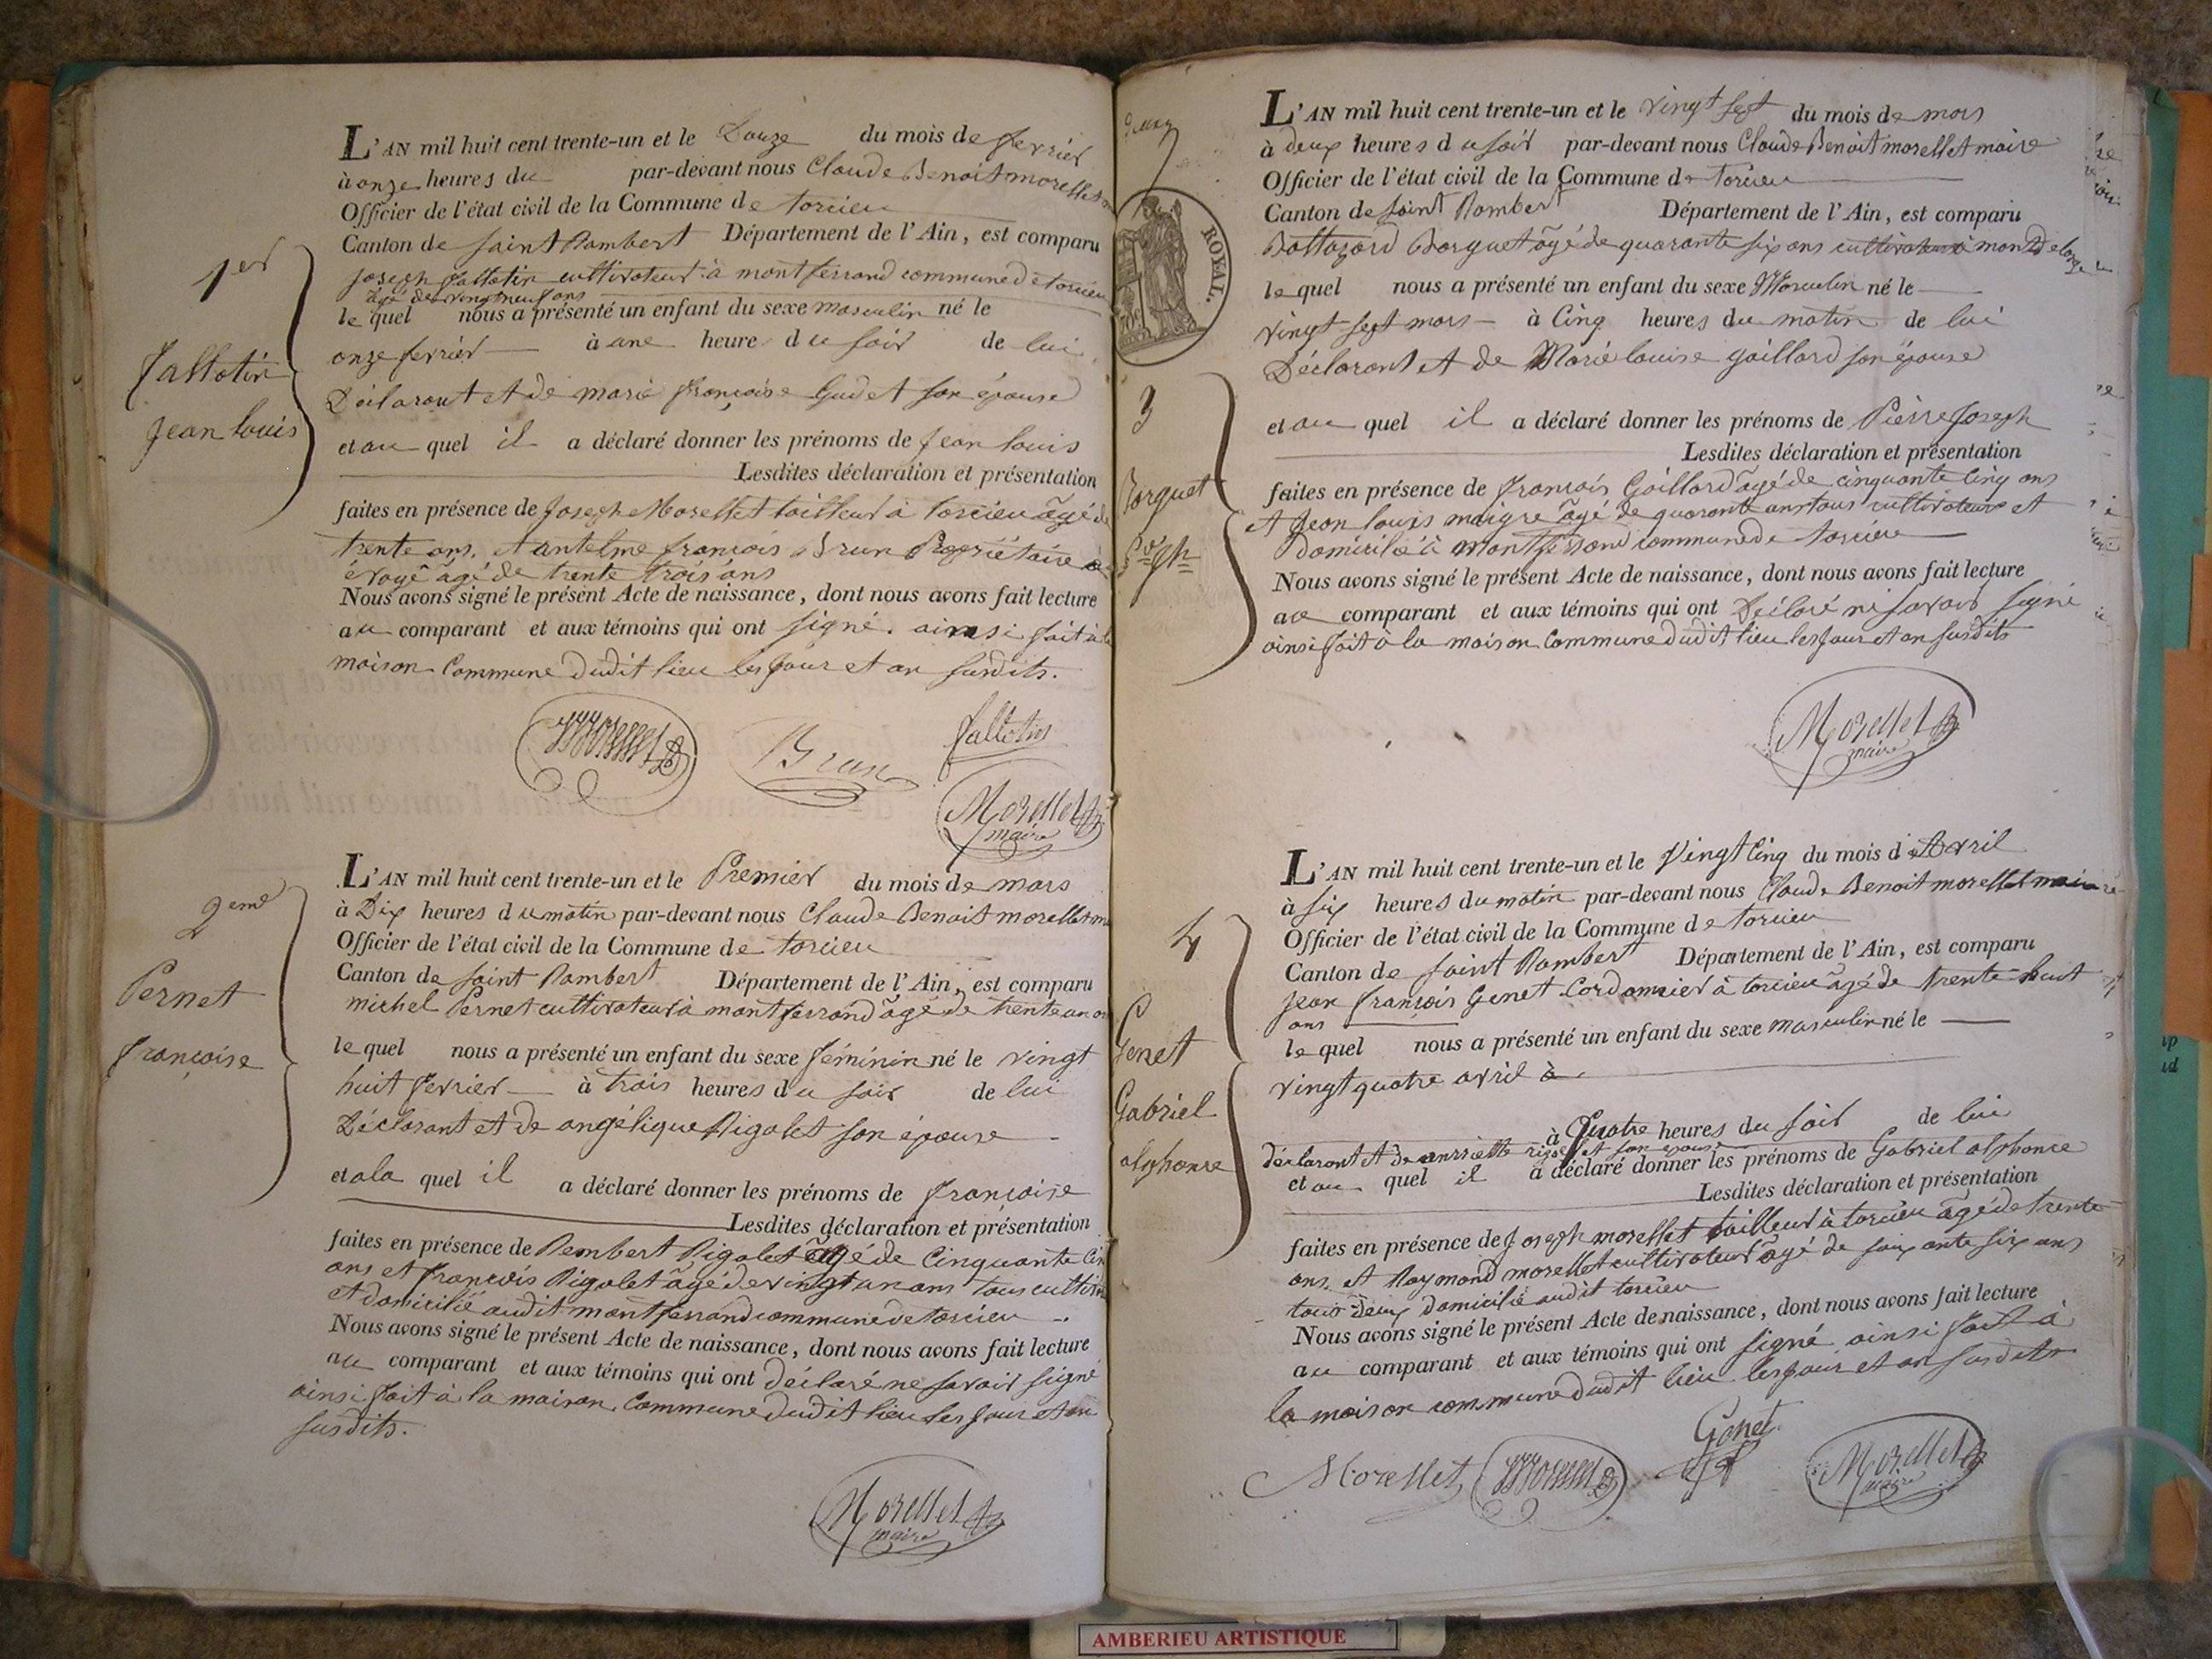 1er
Fallotin
Jean louis
L'AN mil huit cent trente-un et le Douze du mois de fevrier
à onze heures du par-devant nous Claude Benoit morellet
Officier de l'état civil de la Commune de torcieu
Canton de saint Rambert Département de l'Ain, est comparu
joseph fallotin cultivateur à montferrand commune de torcieu
âgé de vingt neuf ans
le quel nous a présenté un enfant du sexe masculin né le
onze fevrier à une heure du soir de lui
Déclarant et de marie françoise Gudet son épouse
et au quel il a déclaré donner les prénoms de Jean louis
Lesdites déclaration et présentation
faites en présence de Joseph Morellet tailleur à torcieu âgé de
trente ans. et antelme françois Brun Propriétaire à
âgé de trente trois ans
Nous avons signé le présent Acte de naissance, dont nous avons fait lecture
au comparant et aux témoins qui ont signé. ainsi fait à la
maison Commune dudit lieu les jour et an susdits.
Morellet Brun fallotin
Morellet
maire
2eme
Pernet
françoise
L'AN mil huit cent trente-un et le Premier du mois de mars
à Dix heures du matin par-devant nous Claude Benoit morellet
Officier de l'état civil de la Commune de torcieu
Canton de saint Rambert Département de l'Ain, est comparu
michel Pernet cultivateur à montferrand âgé de trente un
le quel nous a présenté un enfant du sexe féminin né le vingt
huit fevrier à trois heures du soir de lui
Déclarant et de angélique Rigolet son épouse
et a la quel il a déclaré donner les prénoms de françoise
Lesdites déclaration et présentation
faites en présence de Rembert Rigolet âgé de Cinquante
ans et françois Rigolet âgé de vingt un ans tous
et domicilié audit montferrand commune de torcieu
Nous avons signé le présent Acte de naissance, dont nous avons fait lecture
au comparant et aux témoins qui ont déclaré ne savoir signé
ainsi fait à la maison Commune dudit lieu les jour et an
susdits.
Morellet
maire
ROYAL.
3
Borguet
L'AN mil huit cent trente-un et le vingt sept du mois de mars
à deux heures du soir par-devant nous Claude Benoit morellet maire
Officier de l'état civil de la Commune de torcieu
Canton de saint Rambert Département de l'Ain, est comparu
Baltazard Borguet âgé de quarante six ans cultivateur à
le quel nous a présenté un enfant du sexe Masculin né le
vingt sept mars à Cinq heures du matin de lui
Déclarant et de Marie louise gaillard son épouse
et au quel il a déclaré donner les prénoms de Pierre Joseph
Lesdites déclaration et présentation
faites en présence de françois Gaillard âgé de cinquante Cinq ans
et Jean louis maigre âgé de quarante ans tous cultivateurs et
domicilié à montferrand commune de torcieu
Nous avons signé le présent Acte de naissance, dont nous avons fait lecture
au comparant et aux témoins qui ont Déclaré ne savoir signé
ainsi fait à la maison Commune dudit lieu les jour et an susdits
Morellet
maire
4
Genet
Gabriel
alphonse
L'AN mil huit cent trente-un et le Vingt Cinq du mois d'Avril
à six heures du matin par-devant nous Claude Benoit morellet maire
Officier de l'état civil de la Commune de torcieu
Canton de saint Rambert Département de l'Ain, est comparu
jean françois Genet Cordonnier à torcieu âgé de trente-huit
ans
le quel nous a présenté un enfant du sexe masculin né le
vingt quatre avril à
à Quatre heures du soir de lui
déclarant et de son épouse
et au quel il a déclaré donner les prénoms de Gabriel alphonse
Lesdites déclaration et présentation
faites en présence de joseph morellet tailleur à torcieu âgé de trente
ans. et Raymond morellet cultivateur âgé de soixante six ans
tous deux domicilié audit torcieu
Nous avons signé le présent Acte de naissance, dont nous avons fait lecture
au comparant et aux témoins qui ont signé ainsi fait à
la maison commune dudit lieu les jour et an susdits
Morellet Morellet Genet Morellet
maire
AMBERIEU ARTISTIQUE